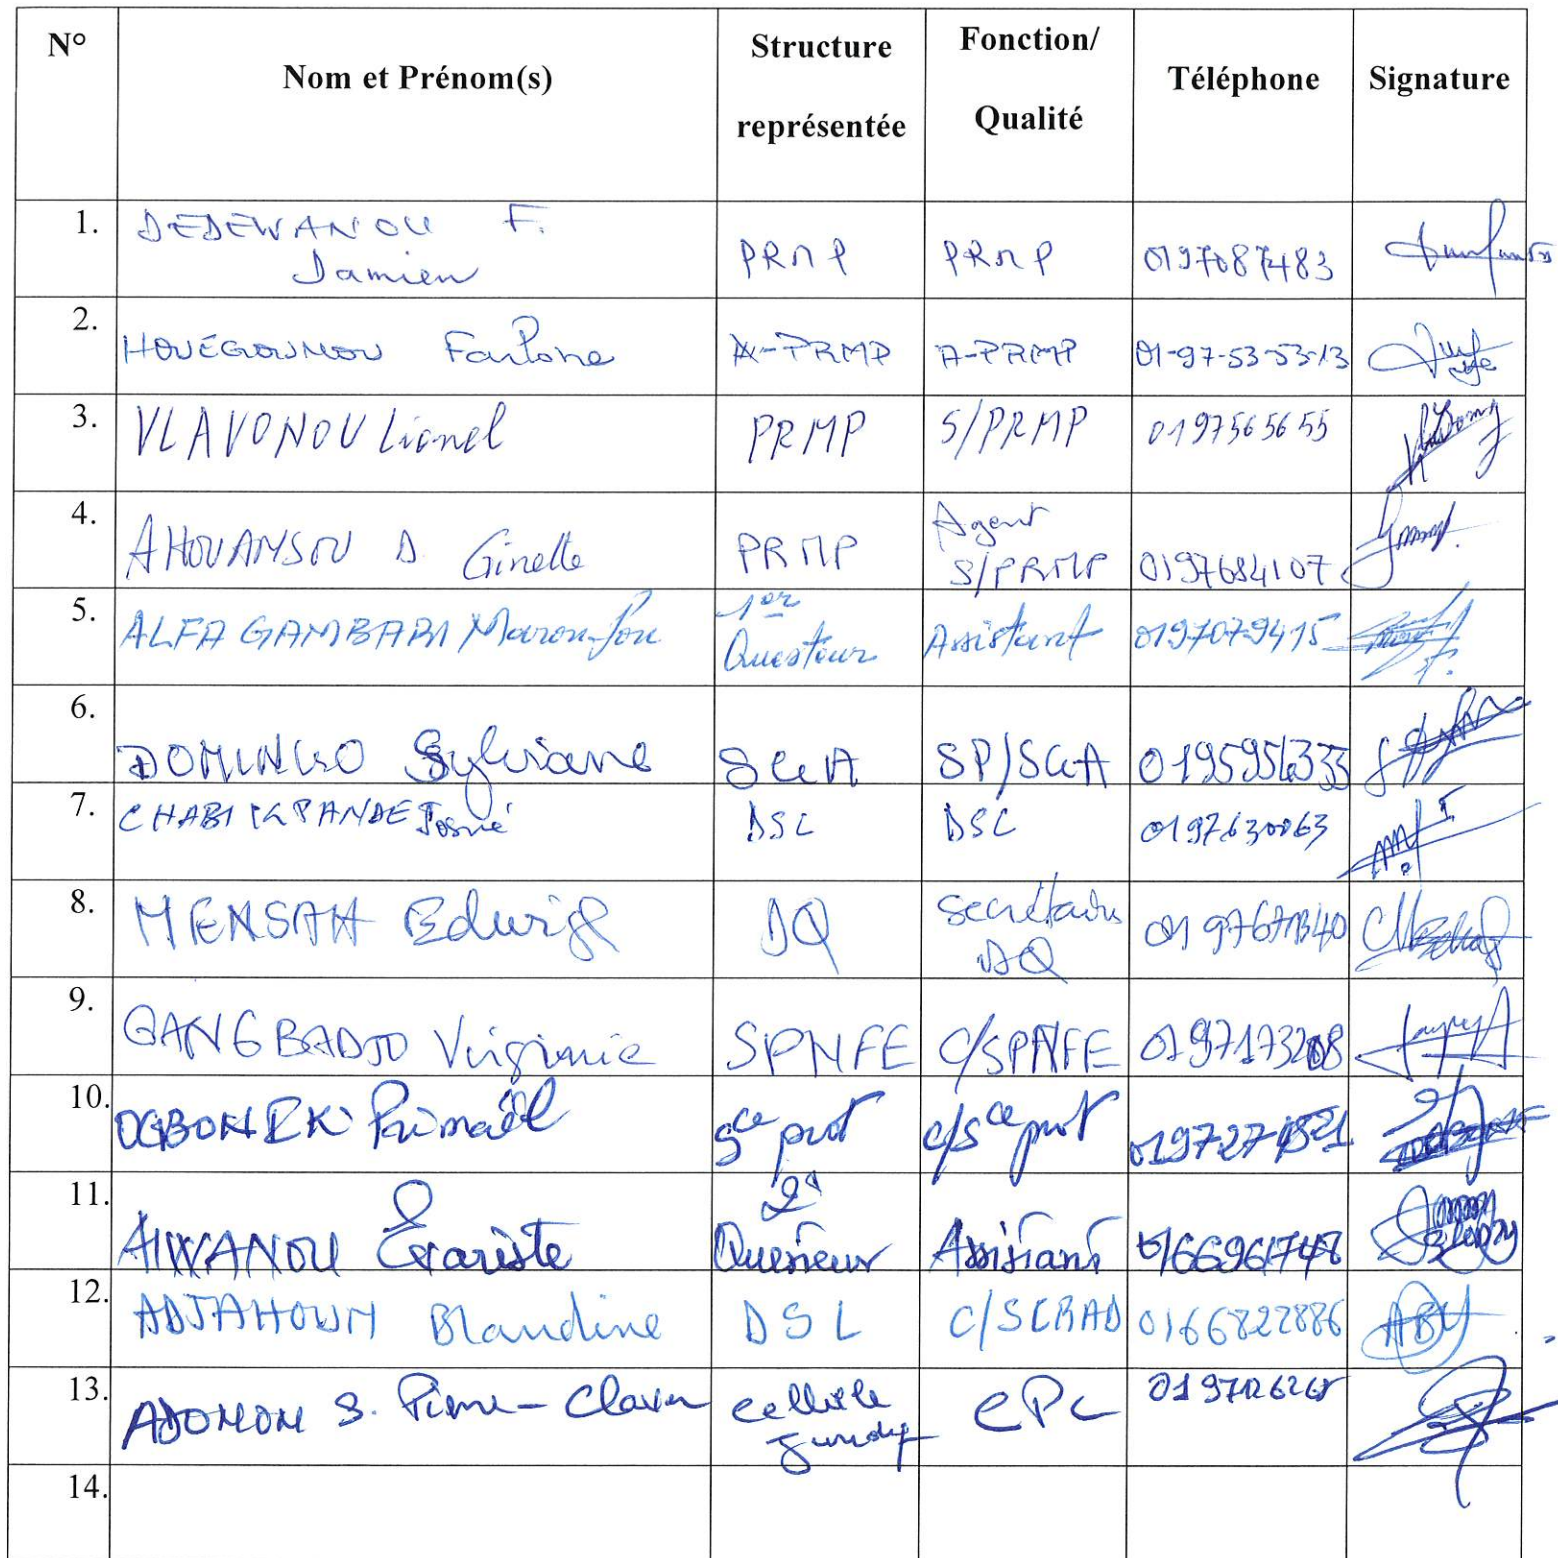 N° Nom et Prénom(s) Structure représentée Fonction/ Qualité Téléphone Signature
1. DEDEWANOU F. Damien PRMP PRMP 0197087483
2. HOUEGOUNOU A-PRMP A-PRMP 01-97-53-53-13
3. VLAVONOU Lionel PRMP S/PRMP 0197565655
4. AHOUANSOU D. Ginette PRMP Agent S/PRMP 0197684107
5. ALFA GAMBARI 1er Questeur Assistant 0197079415
6. DOMINGO Sylviane SGA SP/SGA 0195956333
7. CHABI KPANDE Josué DSL DSL 0197630063
8. MENSAH Edwige DQ Secrétaire DQ
9. GANGBADJO Virginie SPNFE C/SPNFE
10. Primaël Sce prot C/Sce prot
11. AIWANOU Evariste 2è Questeur Assistant 0166961748
12. ADJAHOUN Blandine DSL 0166822886
13. ADOMON S. Pierre-Claver Cellule CPC
14.